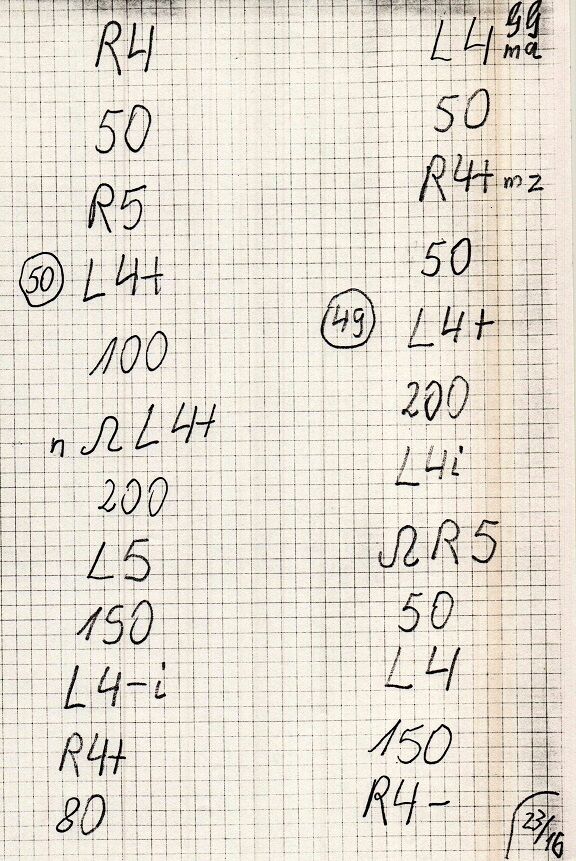 R4
50
R5
50 L4+
100
n Ω L4+
200
L5
150
L4-i
R4+
80
L4 gg ma
50
R4+ mz
50
49 L4+
200
L4i
Ω R5
50
L4
150
R4-
23/16